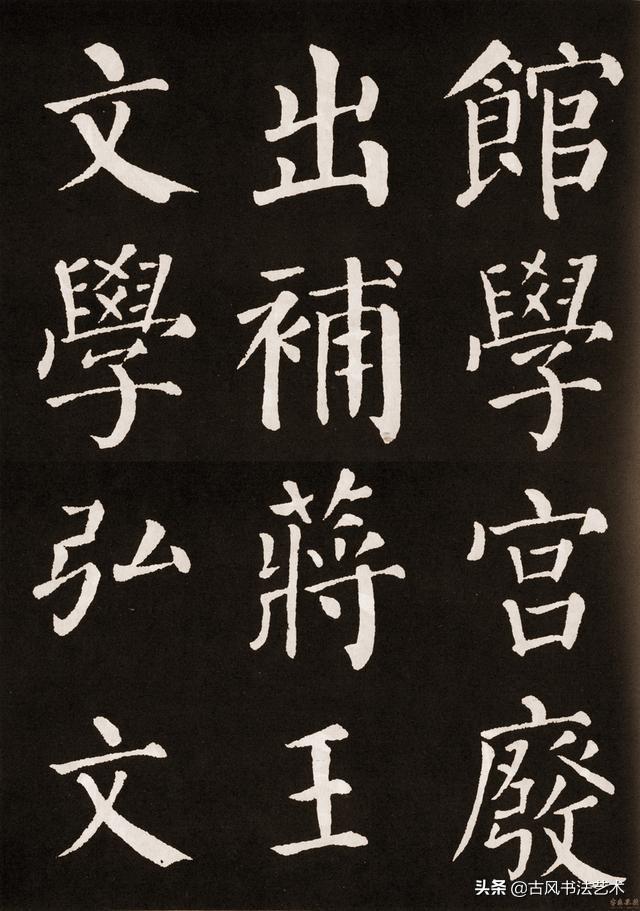 館學宮廢
出補蔣王
文學弘文
头条 @古风书法艺术